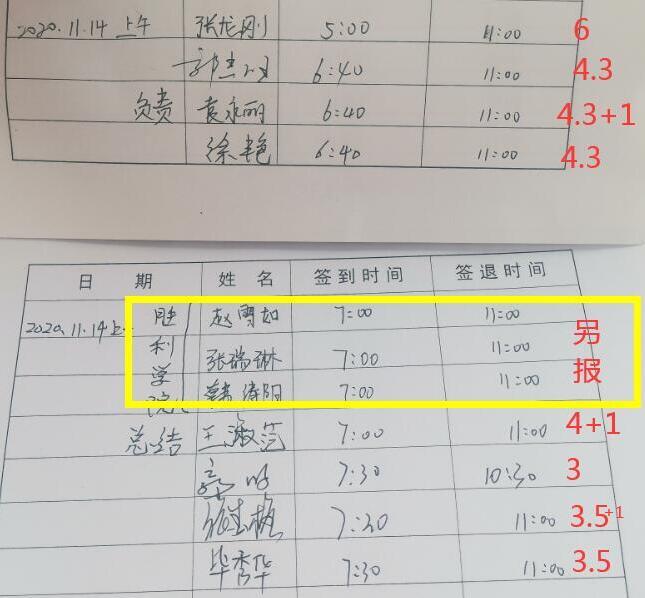 2020.11.14 上午 张龙刚 5:00 11:00 6
6:40 11:00 4.3
负责 袁永丽 6:40 11:00 4.3+1
徐艳 6:40 11:00 4.3
日 期 姓 名 签到时间 签退时间
2020.11.14上 胜 赵雪如 7:00 11:00 另
利 张瑞琳 7:00 11:00 报
学 韩 阳 7:00 11:00
院
总结 王淑范 7:00 11:00 4+1
7:30 10:30 3
7:30 11:00 3.5+1
毕秀华 7:30 11:00 3.5